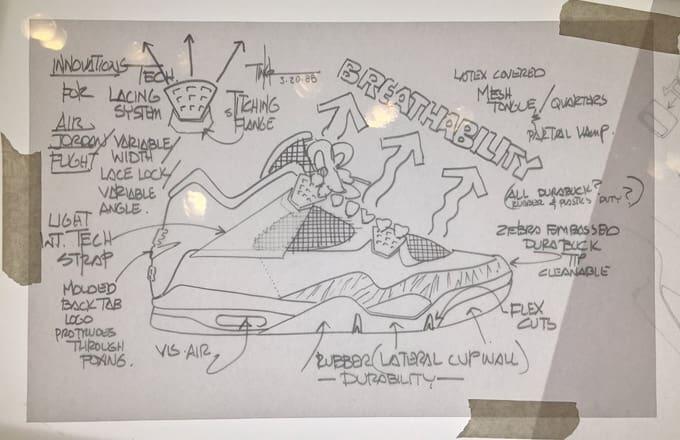 INNOVATIONS
FOR
AIR
JORDAN/
FLIGHT
TECH.
LACING
SYSTEM
VARIABLE
WIDTH
LACE LOCK/
VARIABLE
ANGLE.
STITCHING
FLANGE
Tink
3.20.88
BREATHABILITY
LATEX COVERED
MESH
TONGUE/QUARTERS
&
PARTIAL VAMP.
(ALL DURABUCK?
RUBBER & PLASTICS DUTY?)
ZEBRA EMBOSSED
DURABUCK
TIP
CLEANABLE
FLEX
CUTS
LIGHT
WT. TECH
STRAP
MOLDED
BACK TAB
LOGO
PROTRUDES
THROUGH
FOXING.
VIS. AIR
RUBBER (LATERAL CUPWALL)
— DURABILITY —